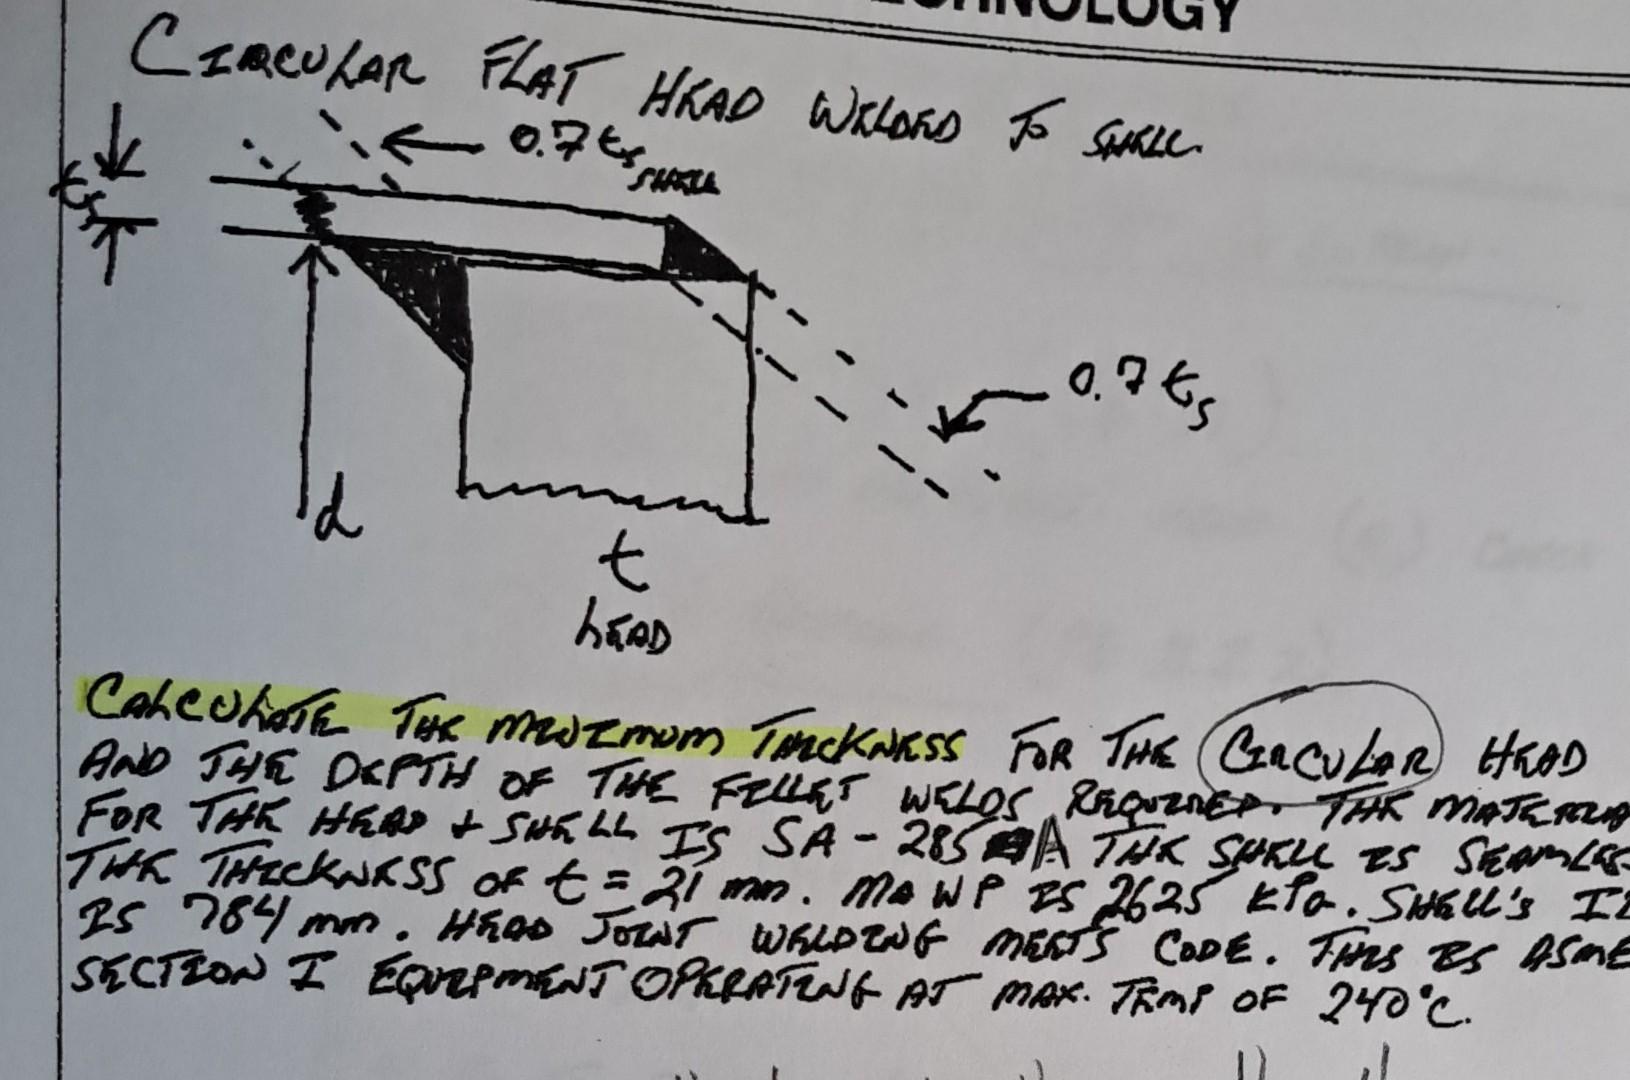 CIRCULAR FLAT HEAD WELDED TO SHELL.
0.7 ts
SHELL
ts
0.7 ts
d
t
HEAD
CALCULATE THE MINIMUM THICKNESS FOR THE CIRCULAR HEAD
AND THE DEPTH OF THE FILLET WELDS REQUIRED. THE MATERIA
FOR THE HEAD + SHELL IS SA - 285 A THE SHELL IS SEAMLES
THE THICKNESS OF t = 21 mm. MAWP IS 2625 kPa. SHELL'S I
IS 784 mm. HEAD JOINT WELDING MEETS CODE. THIS IS ASME
SECTION I EQUIPMENT OPERATING AT MAX. TEMP OF 240°C.